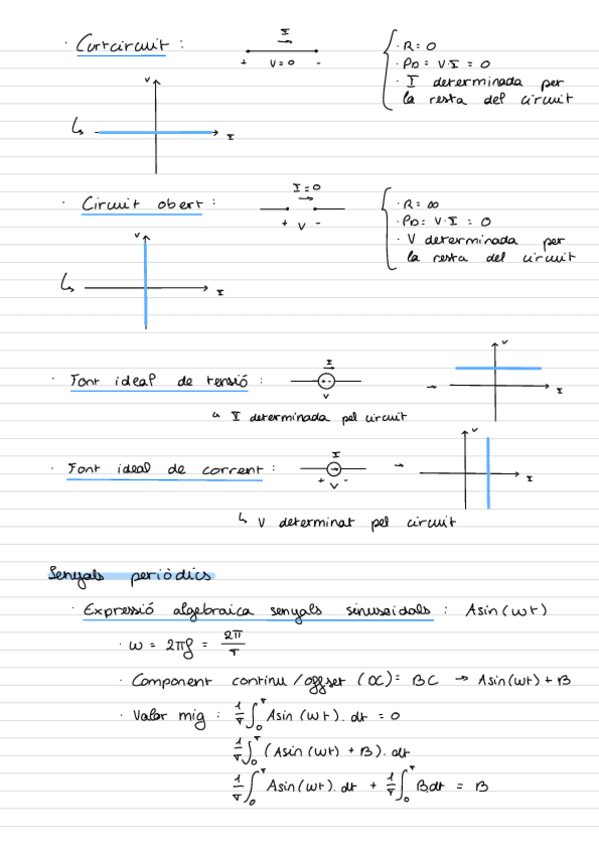 · Curtcircuit :
I
+ V=0 -
· R= 0
· PD= V·I = 0
· I determinada per
la resta del circuit
V
I
· Circuit obert :
I=0
+ V -
· R= ∞
· PD= V·I = 0
· V determinada per
la resta del circuit
V
I
· Font ideal de tensió :
I
+ -
V
→
V
I
↳ I determinada pel circuit
· Font ideal de corrent :
I
+ V -
→
V
I
↳ V determinat pel circuit
Senyals periòdics
· Expressió algebraica senyals sinusoidals : Asin(wt)
· w = 2πf = 2π/T
· Component continu /offset (DC)= BC → Asin(wt) + B
· Valor mig : 1/T ∫₀ᵀ Asin(wt). dt = 0
1/T ∫₀ᵀ (Asin(wt) + B). dt
1/T ∫₀ᵀ Asin(wt). dt + 1/T ∫₀ᵀ B.dt = B